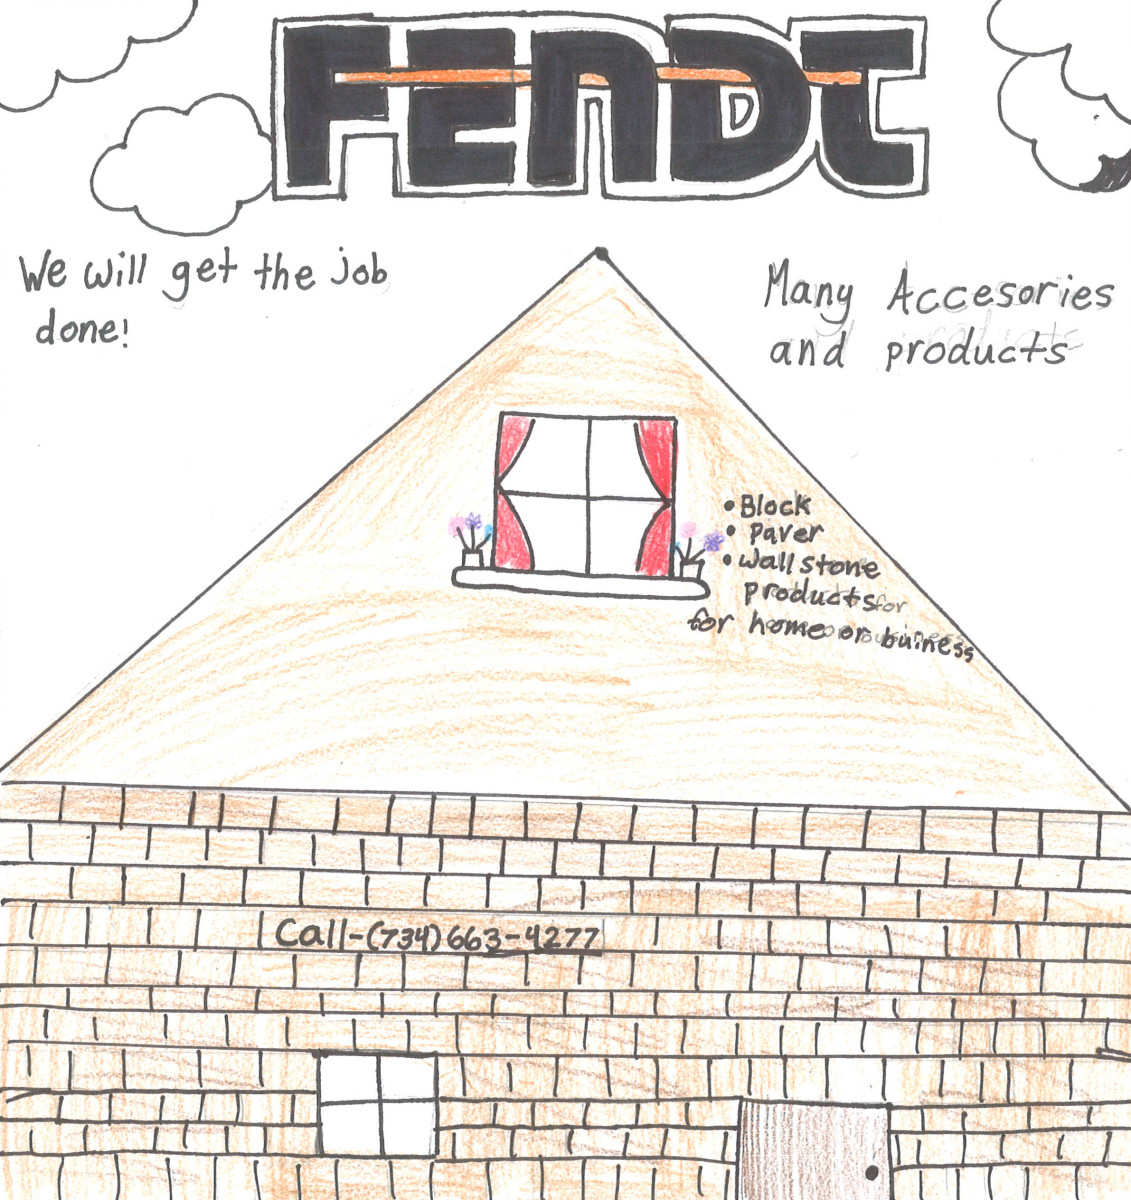 FENDT
We will get the job
done!
Many Accesories
and products
• Block
• Paver
• Wall stone
products for
for home or buiness
Call-(734)663-4277